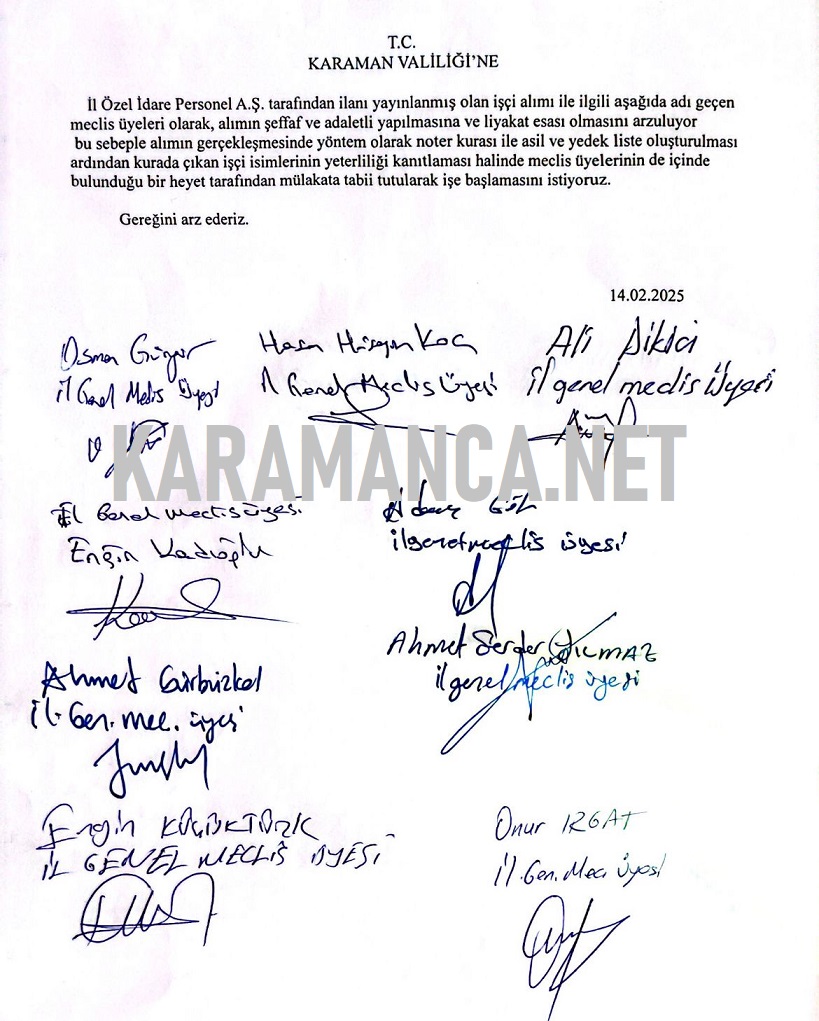 T.C.
KARAMAN VALİLİĞİ'NE
İl Özel İdare Personel A.Ş. tarafından ilanı yayınlanmış olan işçi alımı ile ilgili aşağıda adı geçen
meclis üyeleri olarak, alımın şeffaf ve adaletli yapılmasına ve liyakat esası olmasını arzuluyor
bu sebeple alımın gerçekleşmesinde yöntem olarak noter kurası ile asil ve yedek liste oluşturulması
ardından kurada çıkan işçi isimlerinin yeterliliği kanıtlaması halinde meclis üyelerinin de içinde
bulunduğu bir heyet tarafından mülakata tabii tutularak işe başlamasını istiyoruz.
Gereğini arz ederiz.
14.02.2025
Osman
İl Genel Meclis Üyesi
Hasan Hüseyin Koç
İl Genel Meclis Üyesi
Ali Dikici
İl genel meclis üyesi
KARAMANCA.NET
İl Genel meclis üyesi
Engin Kadıoğlu
Gök
il genel meclis üyesi
Ahmet Gürbüzkol
İl. Gen. mec. üyesi
Ahmet Serdar YILMAZ
il genel meclis üyesi
Engin KÜÇÜKTÜRK
İL GENEL MECLİS ÜYESİ
Onur IRGAT
İl. Gen. Mec. Üyesi